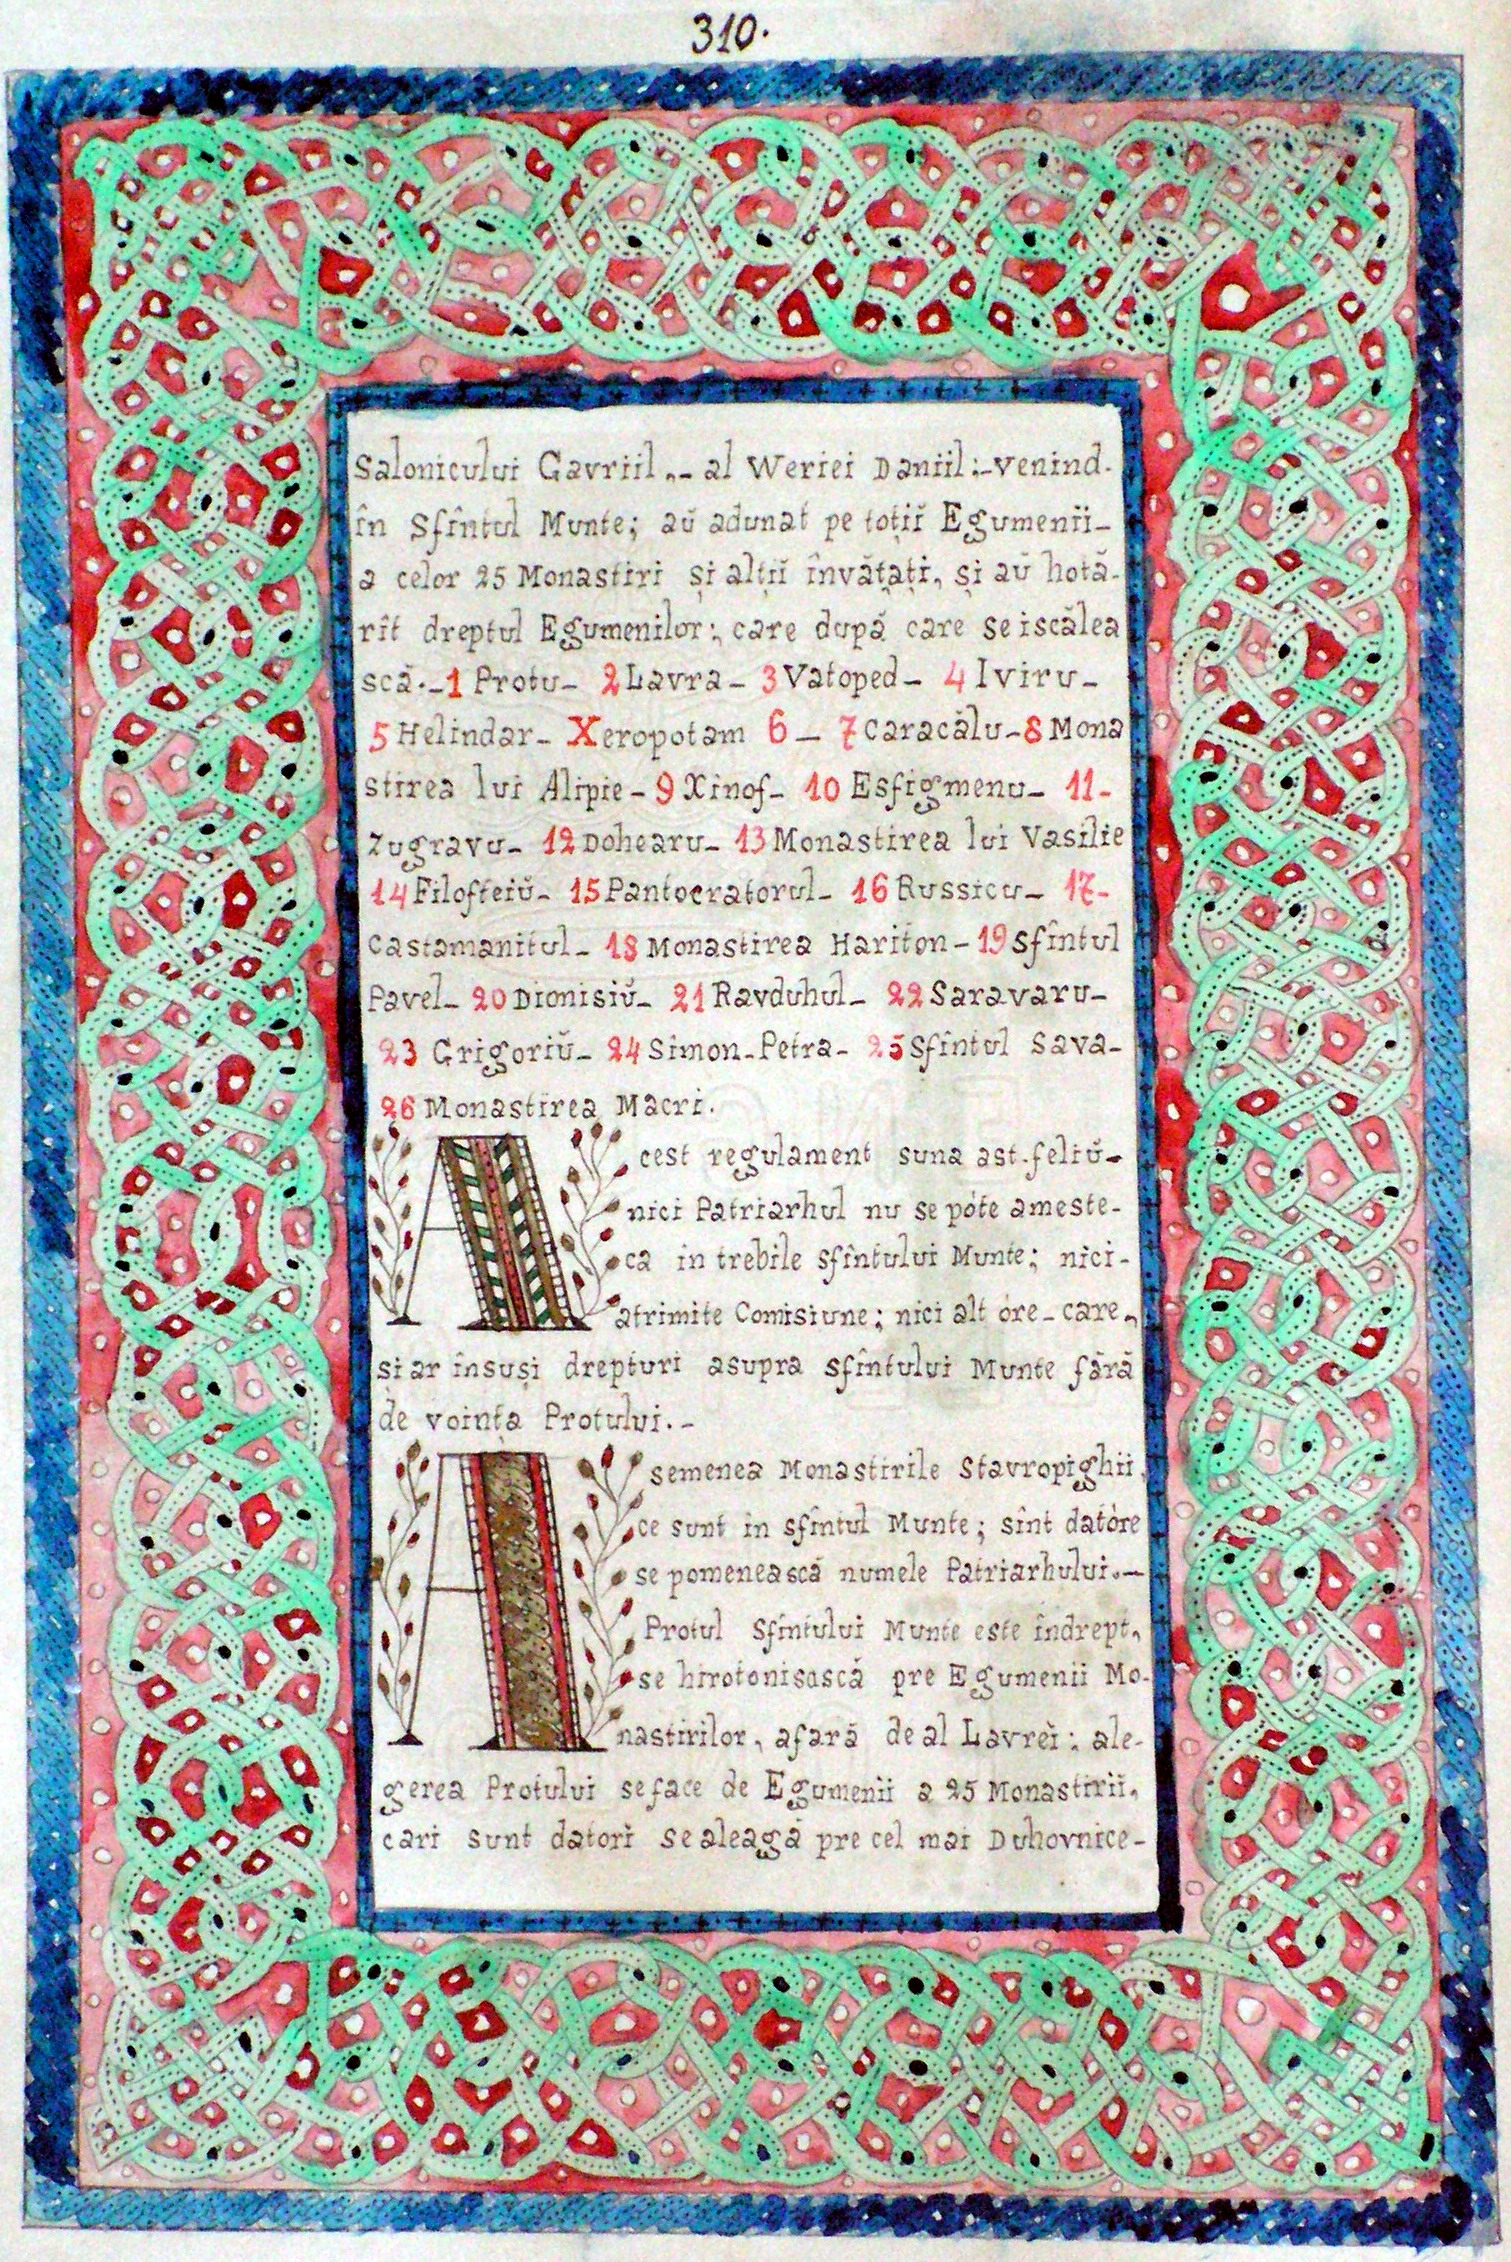 310.
Salonicului Gavriil,- al Weriei Daniil:-venind.
în Sfîntul Munte; aŭ adunat pe totiĭ Egumeniĭ-
a celor 25 Monastiri și alțiĭ învățați, și aŭ hotă-
rît dreptul Egumenilor:, care după care se iscălea
scă.-1 Protu- 2 Lavra- 3 Vatoped- 4 Iviru-
5 Helindar- Xeropotam 6 - 7 Caracălu-8 Mona
stirea lui Alipie-9 Xinof- 10 Esfigmenu- 11-
Zugravu- 12 Dohearu- 13 Monastirea lui Vasilie
14 Filofteiŭ- 15 Pantocratorul- 16 Russicu- 17-
Castamanitul- 18 Monastirea Hariton-19 Sfîntul
Pavel- 20 Dionisiŭ- 21 Ravduhul- 22 Saravaru-
23 Grigoriŭ- 24 Simon-Petra- 25 Sfîntul Sava-
26 Monastirea Macri.
Acest regulament suna ast-feliŭ-
nici Patriarhul nu se póte ameste-
ca in trebile sfîntului Munte; nici-
atrimite Comisiune; nici alt ore-care,
și ar însuși drepturi asupra sfîntului Munte fără
de voința Protului.-
Asemenea Monastirile Stavropighii,
ce sunt in sfîntul Munte; sînt datóre
se pomenească numele Patriarhului.-
Protul Sfîntului Munte este îndrept,
se hirotonisască pre Egumenii Mo-
nastirilor, afară de al Lavreĭ; ale-
gerea Protului se face de Egumenii a 25 Monastiriĭ,
cari sunt datorĭ se aleagă pre cel mai Duhovnice-